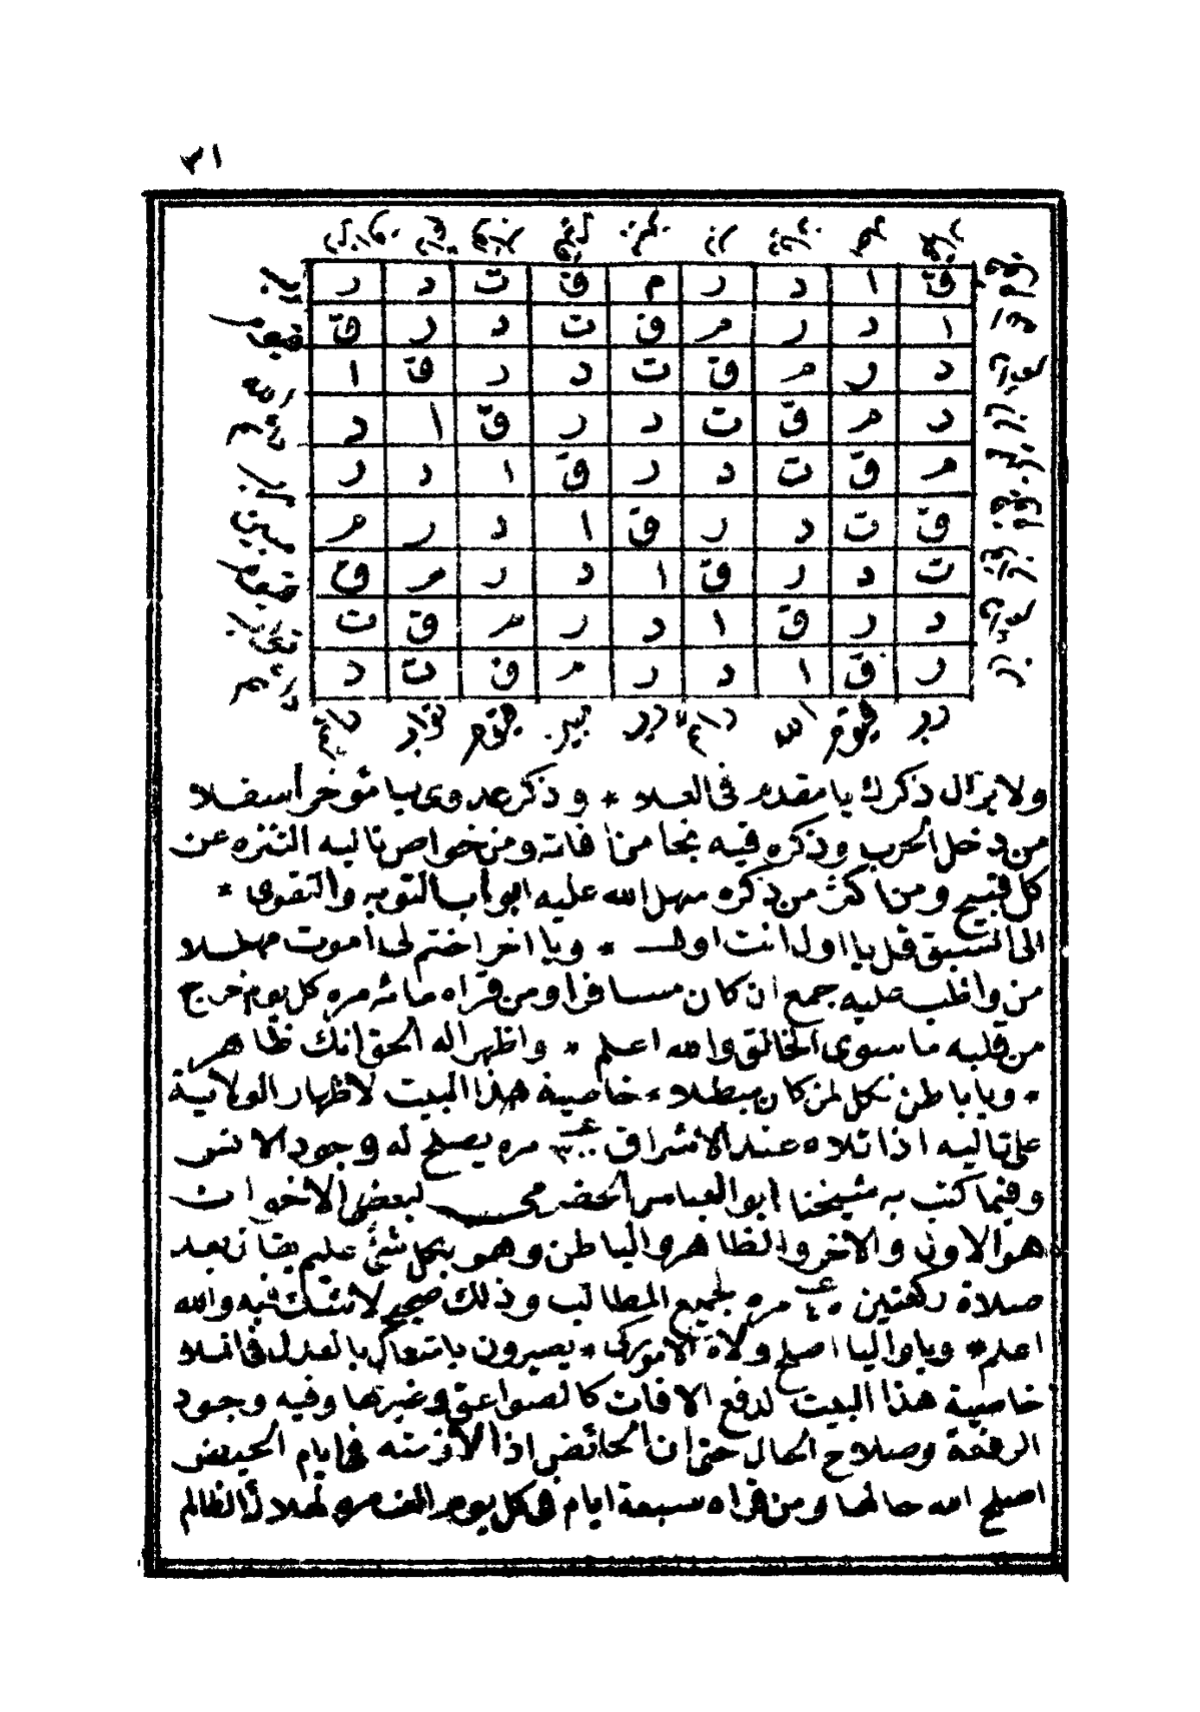 ٣١
ق ا د ر م ق ت د ر
ا د ر م ق ت د ر ق
د ر م ق ت د ر ق ا
د م ق ت د ر ق ا د
م ق ت د ر ق ا د ر
ق ت د ر ق ا د ر م
ت د ر ق ا د ر م ق
د ر ق ا د ر م ق ت
ر ق ا د ر م ق ت د
ولا يزال ذكرك يا مقدم فى العلا * وذكر عدوى يا مؤخر اسفلا
من دخل الحرب وذكره فيه نجا من افاته ومن خواص تاليه التنزه عن
كل قبيح ومن اكثر من ذكره سهل الله عليه ابواب التوبه والتقوى *
الى السبق قل يا اول انت اول * ويا اخر اختم لى اموت مهللا
من واظب عليه جمع ان كان مسافرا ومن قراه مائه مره كل يوم خرج
من قلبه ما سوى الخالق والله اعلم * واظهر اله الحق انك ظاهر
* ويا باطن نكل لمن كان مبطلا * خاصية هذا البيت لاظهار الولاية
على تاليه اذا تلاه عند الاشراق ٣٠٠ مره يصلح له وجود الانس
وفيما كتب به شيخنا ابو العباس الحضرمى لبعض الاخوان
هو الاول والاخر والظاهر والباطن وهو بكل شئ عليم يقال بعد
صلاة ركعتين ٤٥ مره لجميع المطالب وذلك صحيح لا شك فيه والله
اعلم * ويا واليا اصلح ولاة الامور كى * يصيرون يا متعال بالعدل فى الملا
خاصية هذا البيت لدفع الافات كالصواعق وغيرها وفيه وجود
الرفعة وصلاح الحال حتى ان الحائض اذا لازمته فى ايام الحيض
اصلح الله حالها ومن قراه سبعة ايام فى كل يوم الف مره لهلاك الظالم